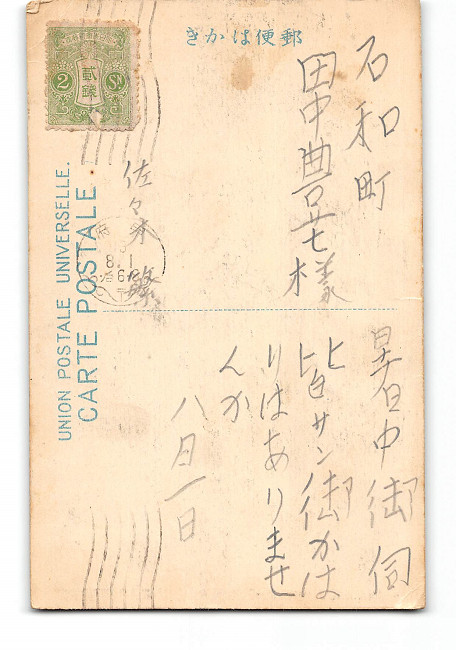 きかは便郵
石和町
田中豊七様
佐々木
暑中御伺
皆サン御かは
りはありませ
んか
八月一日
UNION POSTALE UNIVERSELLE.
CARTE POSTALE
貳錢
2
Sn
8.1